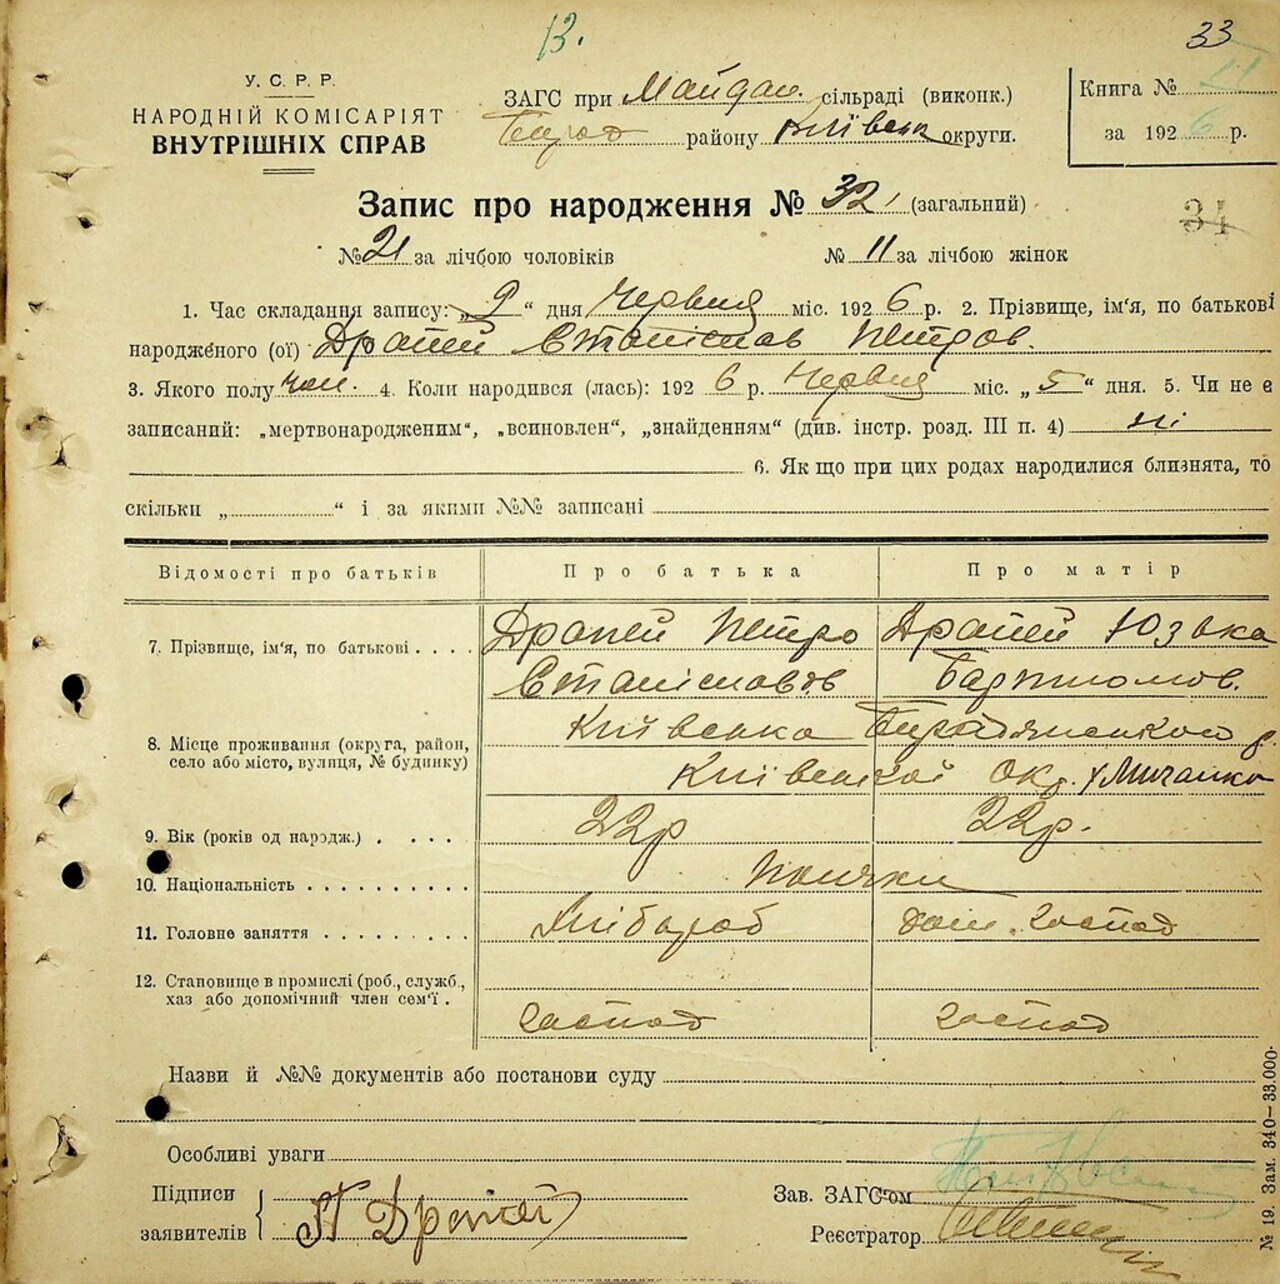 13.
33
У. С. Р. Р.
НАРОДНІЙ КОМІСАРІЯТ
ВНУТРІШНІХ СПРАВ
ЗАГС при Майдан. сільраді (виконк.)
району Київськ округи.
Книга № 21
за 1926 р.
Запис про народження № 32 (загальний)
34
№ 21 за лічбою чоловіків № 11 за лічбою жінок
1. Час складання запису: „9“ дня Червня міс. 1926 р. 2. Прізвище, ім'я, по батькові
народженого (ої) Драпей Станіслав Петров.
3. Якого полу чол. 4. Коли народився (лась): 1926 р. Червня міс. „5“ дня. 5. Чи не є
записаний: „мертвонародженим“, „всиновлен“, „знайденням“ (див. інстр. розд. III п. 4) ні
6. Якщо при цих родах народилися близнята, то
скільки „ “ і за якими №№ записані
Відомості про батьків Про батька Про матір
7. Прізвище, ім'я, по батькові . . . . Драпей Петро Драпей Юзвка
Станіславов Бартломов.
8. Місце проживання (округа, район, село або місто, вулиця, № будинку) Київська Бородянськой р.
Київської Ок. х Мичалка
9. Вік (років од народж.) . . . . 22р 22р.
10. Національність . . . . . . . . . . Поляки
11. Головне заняття . . . . . . . . . Хлібороб дом. господ
12. Становище в промислі (роб., служб., хаз або допомічний член сем'ї .
господ господ
Назви й №№ документів або постанови суду
Особливі уваги
Підписи заявителів П Драпей
Зав. ЗАГС'ом
Реєстратор
№ 19. Зам. 340—33.000.